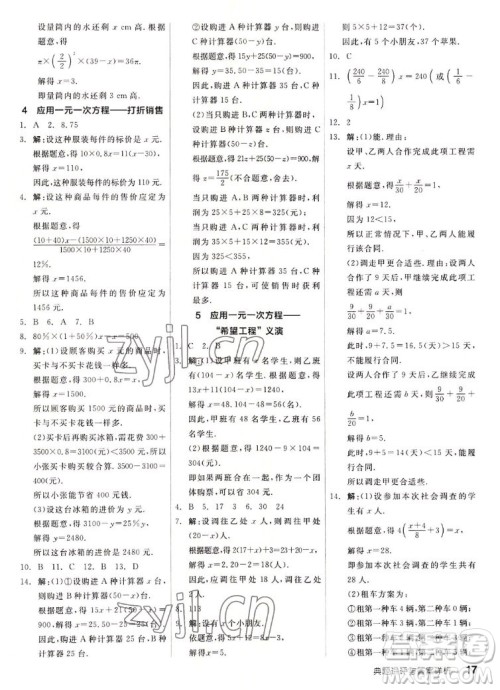 显量筒内的水还剩 x cm. 根据
题意,得
π×(2/2)²×(39-x)=36.
解得 x=3.
即量筒内的水还剩 3 cm 高.
4 应用一元一次方程——打折销售
1. A 2. 8.75
3. 解:设这种服装每件的标价是 x 元.
根据题意,得 10×0.8x=11(x-30).
解得 x=110.
因此,这种服装每件的标价为 110 元.
4. 解:设这种商品每件的售价是 x 元.
根据题意,得
解得 x=1456.
所以这种商品每件的售价应为
1456 元.
5. B 6. A 7. B
8. 80%×(1+50%)x-x=500
9. 解:(1)设顾客购买 x 元的商品时,
买卡与不买卡花钱相等.
根据题意,得 300+0.8x=x.
解得 x=1500.
所以顾客购买 1500 元的商品时,
买卡与不买卡花钱相等.
(2)买卡后再购买冰箱,需花费 300
+3500×0.8=3100(元)<3500 元,
小张买卡购买较合算. 3500-3100=
400(元).
所以小张能节省 400 元.
(3)设这台冰箱的进价为 y 元.
根据题意,得
3100-y=25%y.
解得 y=2480.
所以这台冰箱的进价是 2480 元.
10. B 11. B 12. C 13. 4
14. 解:(1)①设购进 A 种计算器 x 台,
则购进 B 种计算器(50-x)台.
根据题意,得 15x+21(50-x)=900.
解得 x=25.
则 50-x=25.
因此,购进 A 种计算器 25 台,B 种
计算器 25 台.
②设购进 A 种计算器 y 台,则购进
C 种计算器(50-y)台.
解得 y=35.
则 50-y=15.
因此,购进 A 种计算器 35 台,C 种
计算器 15 台.
③设购进 B 种计算器 z 台,则购进
C 种计算器(50-z)台.
根据题意,得
21z+25(50-z)=900.
解得 z=175/2(不合题意,舍去).
(2)当只购买 A,B 两种计算器时,利
润为 25×5+25×8=325(元);
当只购买 A,C 两种计算器时,利
因为 325<355,
所以购进 A 种计算器 35 台,C 种
计算器 15 台,可使销售时获利
最多.
5 应用一元一次方程——
“希望工程”义演
1. C 2. B
3. 解:(1)设甲班有 x 名学生,则乙班
有(104-x)名学生.
根据题意,得
13x+11(104-x)=1240.
解得 x=48.
则 104-x=104-48=56.
因此,甲班有 48 名学生,乙班有 56
名学生.
(2)根据题意,得 1240-9×104=
304(元).
所以两班联合起来,作为一个
团体购票,可省 304 元.
4. B 5. 17 6. 30
7. 解:设调往甲处 x 人,则调往乙处
(20-x)人.
根据题意,得 27+x=2(19+20-x).
解得 x=17.
则 20-x=3.
因此,应调往甲处 17 人,调往乙处
3 人.
8. 113
9. 解:设有 x 个小朋友.
根据题意,得 7x+2=9x-8.
解得 x=5.
则 5×5+12=37(个).
因此,有 5 个小朋友,37 个橘子.
10. C
11. (240/6-240/8)x=240
12. 2
13. 解:(1)能履行该合同.
设甲、乙两人合作完成此项工程需
x 天.
根据题意,得 x/30+x/20=1.
解得 x=12.
因为 12<15,
所以正常情况下,甲、乙两人能履
行该合同.
(2)调走甲更合适些. 理由:设两人
合作了 9 天后,甲继续完成此项工
程共用 a 天.
根据题意,得
9/30+9/20+a/30=1.
解得 a=7.5.
此时,9+7.5=16.5(天)>15 天,不
能履行合同.
设两人合作了 9 天后,乙继续完成
此项工程共用 b 天.
根据题意,得 9/30+9/20+
b/20=1.
解得 b=5.
此时,9+5=14(天)<15 天,能履
行合同.
所以调走甲更合适些.
14. 解:(1)设参加本次社会调查的学生
共 x 人.
根据题意,得
4(x+4/8+3)=x.
解得 x=28.
即参加本次社会调查的学生共
28 人.
(2)租车方案为:
①租第一种车 4 辆,第二种车 0 辆;
②租第一种车 3 辆,第二种车 1 辆;
17
zyjl.cn